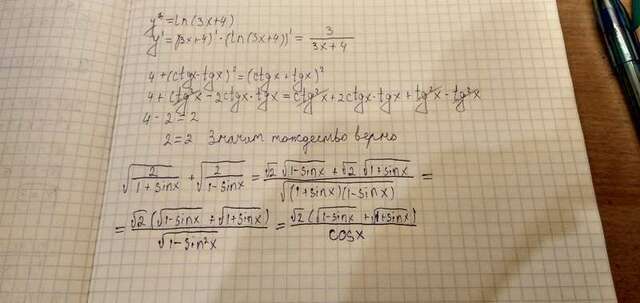 y = ln(3x+4)
y' = (3x+4)' · (ln(3x+4))' = 3/(3x+4)
4 + (ctgx - tgx)² = (ctgx + tgx)²
4 + ctg²x - 2ctgx · tgx = ctg²x + 2ctgx · tgx + tg²x - tg²x
4 - 2 = 2
2 = 2 Значит тождество верно
√(2/(1+sinx)) + √(2/(1-sinx)) = (√2 √(1-sinx) + √2 √(1+sinx))/√((1+sinx)(1-sinx)) =
= √2 (√(1-sinx) + √(1+sinx))/√(1-sin²x) = √2 (√(1-sinx) + √(1+sinx))/cosx